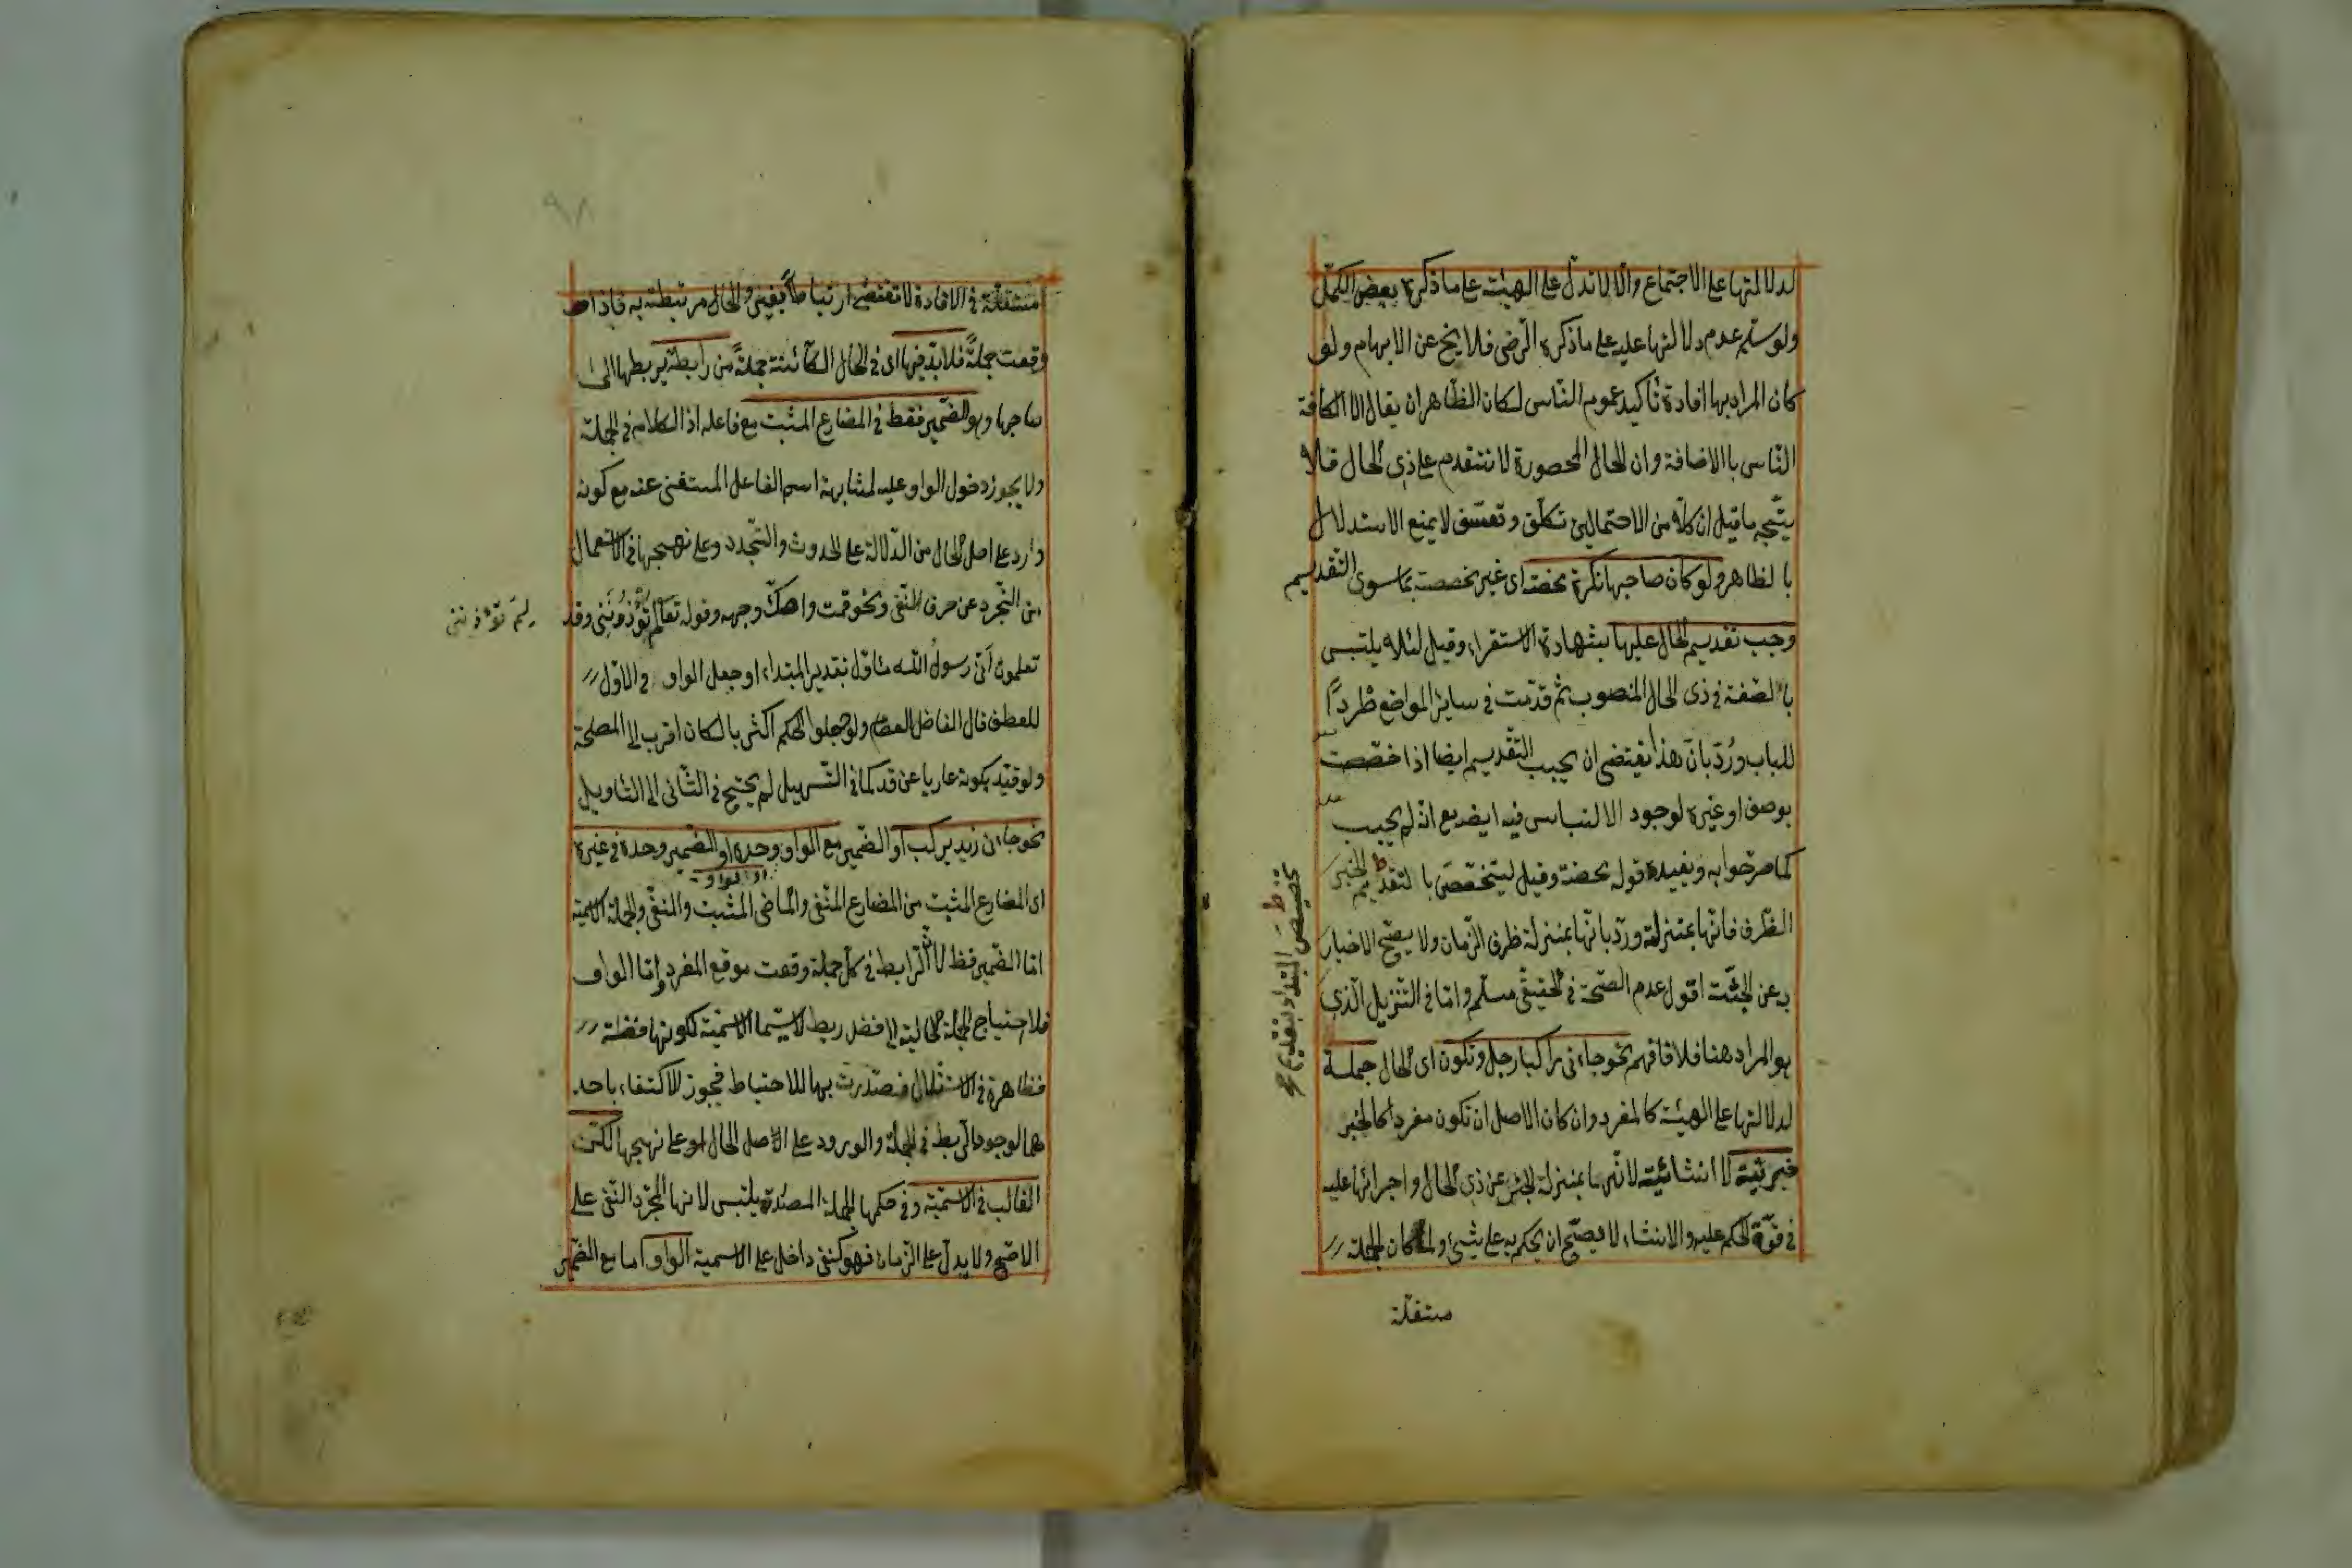 لدلالتها على الاجتماع والا لا تدل على الهيئة على ما ذكره بعض الكمّل
ولو سلم عدم دلالتها عليه على ما ذكره الرّضى فلا يخ عن الابهام ولو
كان المراد بها افادة تأكيد عموم النّاس لكان الظّاهر ان يقال الا الكافة
النّاس باالاضافة وان الحال المحصورة لا تتقدم على ذى الحال فلا
يتّجه ما قيل ان كلا من الاحتمالين تكلّف وتعسّف لا يمنع الاستدلال
بالظاهر ولو كان صاحبها نكرة محضة اى غير مخصصة بما سوى التّقديم
وجب تقديم الحال عليها بشهادة الاستقراء وقيل لئلا يلتبس
باالصّفة فى ذى الحال المنصوب ثم قدّمت فى ساير المواضع طردًا
للباب ورُدّ بانّ هذا يقتضى ان يجب التّقديم ايضا اذا خصّصت
بوصف او غيره لوجود الالتباس فيه ايضا مع انّه لم يجب
كما صرّحوا به ويفيده قوله محضة وقيل ليتخصّص باالتقديم الخبر
الظّرف فانّها بمنزلته وردّ بانّها بمنزلة ظرف الزّمان ولا يصحّ الاخبار
به عن الجثّة اقول عدم الصّحة فى الحقيقى مسلّم وامّا فى التّنزيل الّذى
هو المراد هنا فلا فافهم نحو جاءنى راكبا رجل وتكون اى الحال جملة
لدلالتها على الهيئة كالمفرد وان كان الاصل ان تكون مفردا كالخبر
خبريّة لا انشائيّة لانّها بمنزلة الخبر عن ذى الحال واجرائها عليه
فى قوّة الحكم عليه والانشاء لا يصحّ ان يحكم به على شئ ولما كان الجملة
مستقلة
تخصيص المبتدأ بتقديم
مستقلّة فى الافادة لا تقتضى ارتباطا بغيرها والحال مرتبطة به فاذا
وقعت جملةً فلا بدّ فيها اى فى الحال الكائنة جملةً من رابطة يربطها الى
صاحبها وهو الضّمير فقط فى المضارع المثبت مع فاعله اذ الكلام فى الجملة
ولا يجوز دخول الواو عليه لمشابهة اسم الفاعل المستغنى عنه مع كونه
وارد على اصل الحال من الدّلالة على الحدوث والتّجدد وعلى نهجها فى الاستعمال
من التّجرد عن حرف النّفى ونحو قمت واصكّ وجهه وقوله تعالى لم تُؤذُونَنِى وقد
لِمَ تؤذوننى
تعلمون أنّى رسولُ الله مأوّل بتقدير المبتداء او جعل الواو فى الاوّل
للعطف قال الفاضل العصام ولو جعلوا الحكم اكثريا لكان اقرب الى المصلحة
ولو قيّد بكونه عاريا عن قد كما فى التّسهيل لم يحتج فى الثّانى الى التّأويل
نحو جاءنى زيد يركب او الضّمير مع الواو وحده او الضّمير وحده فى غيره
او الواو
اى المضارع المثبت من المضارع المنفى والماضى المثبت والمنفى والجملة الاسمية
امّا الضّمير فقط لانّه الرّابط فى كلّ جملة وقعت موقع المفرد وامّا الواو
فلاحتياج الجملة الحالية الى فضل ربط لا سيّما الاسميّة لكونها فضلة
فظاهرة فى الاستقلال فصدّرت بها للاحتياط فجوز الاكتفاء باحد
هما لوجود الرّبط فى الجملة والورود على الاصل الحال او على نهجها لكن
الغالب فى الاسميّة وفى حكمها الجملة المصدّرة بليس لانها لمجرّد النّفى على
الاصحّ ولا يدلّ على الزّمان فهو كنفى داخل على الاسمية الواو اما مع الضّمير